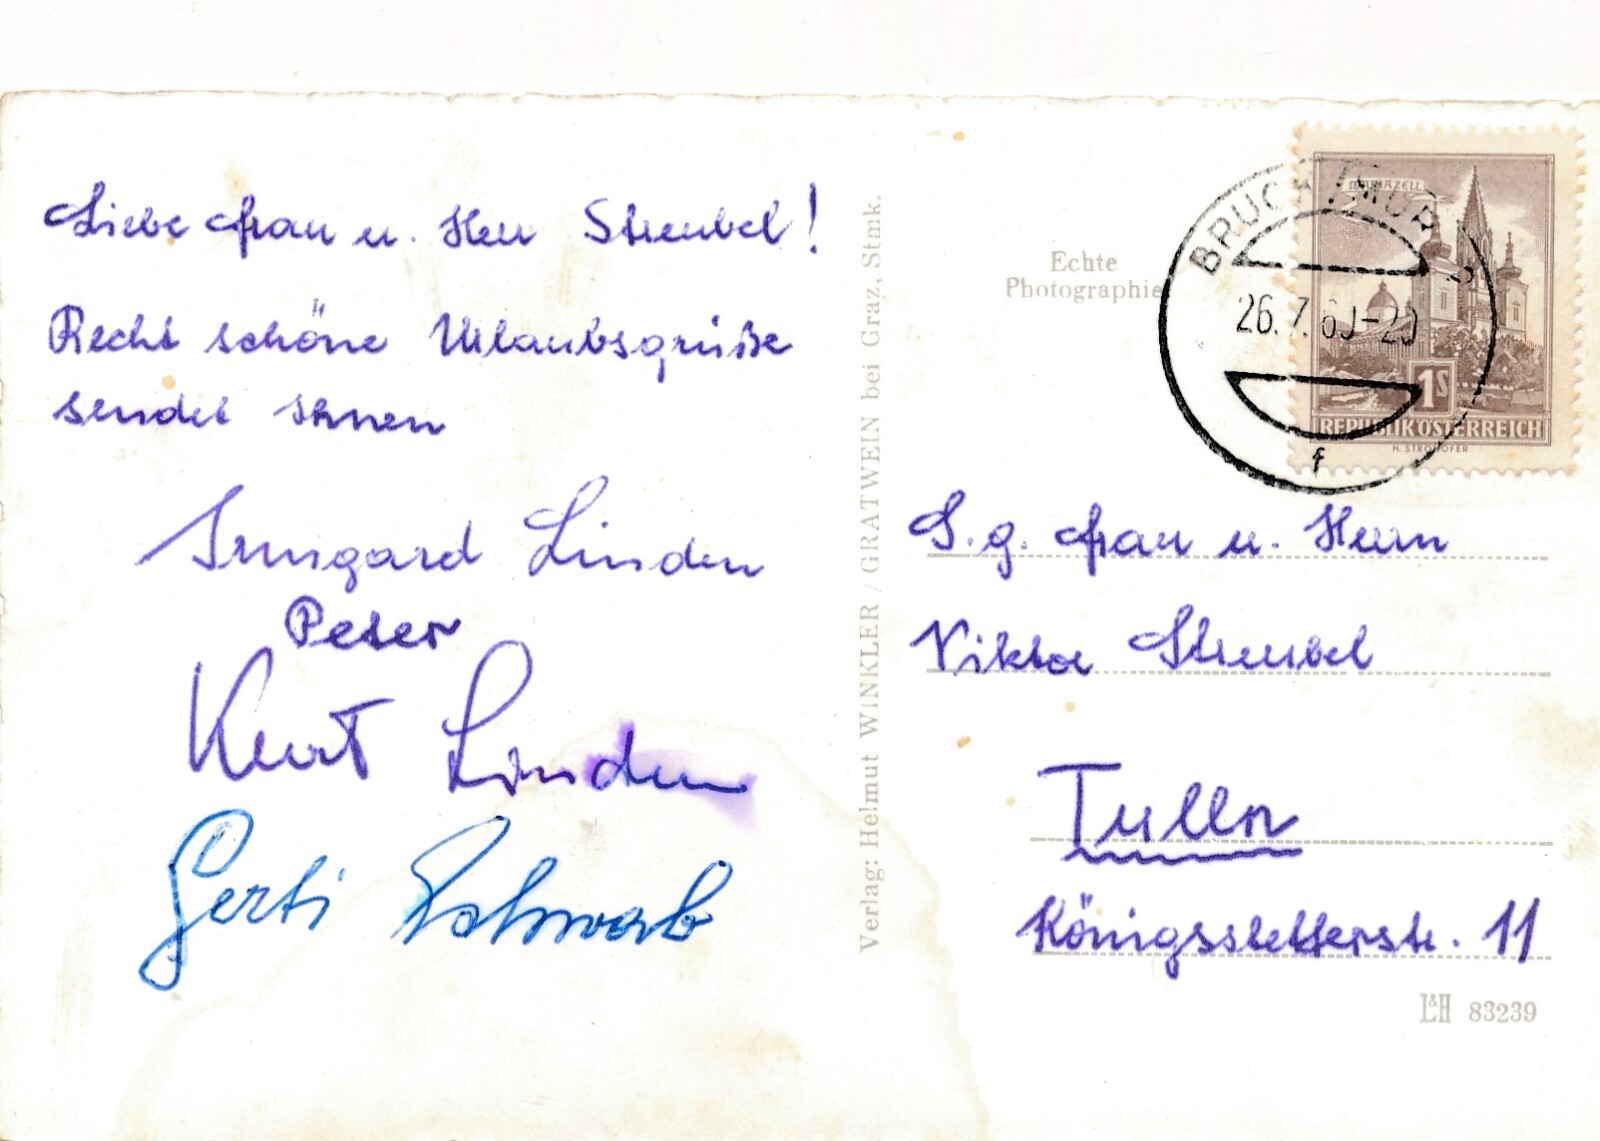 Liebe Frau u. Herr Streubel!
Recht schöne Urlaubsgrüße
sendet Ihnen
Irmgard Linden
Peter
Kurt Linden
Gerti Schwab
Verlag: Helmut WINKLER / GRATWEIN bei Graz, Stmk.
Echte
Photographie
BRUCK / MUR
26.7.60-20
f
MARIAZELL
1S
REPUBLIK ÖSTERREICH
H. STROHOFER
S.g. Frau u. Herrn
Viktor Streubel
Tulln
Königsstetterstr. 11
L&H 83239